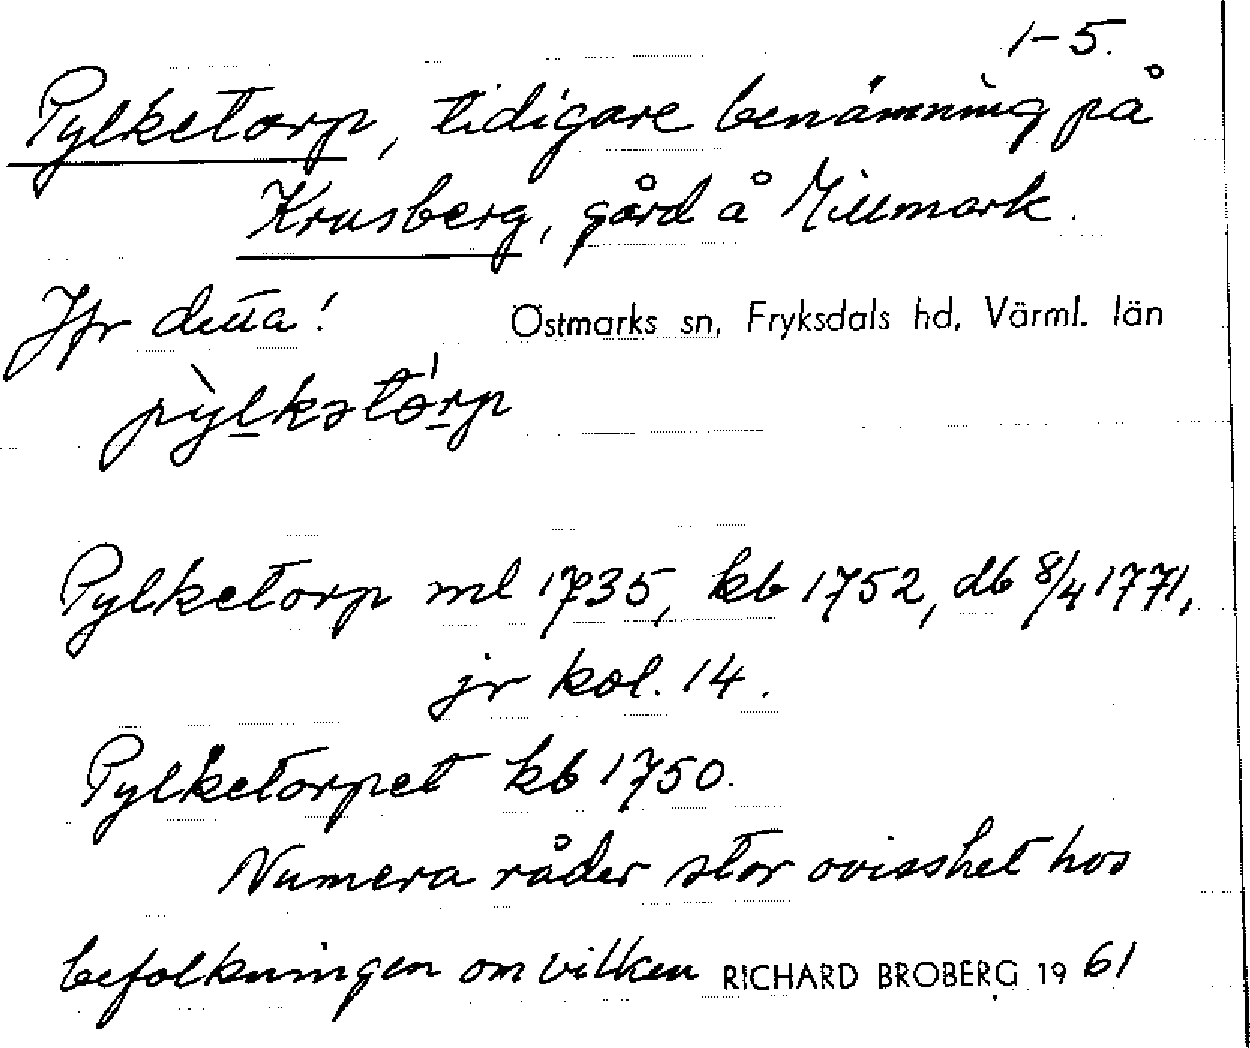 1-5.
Pylketorp, tidigare benämning på
Krusberg, gård å Millmark.
Jfr detta! Östmarks sn, Fryksdals hd, Värml. län
pỳlkətórp
Pylketorp ml 1735, kb 1752, db 8/4 1771,
jr kol. 14.
Pylketorpet kb 1750.
Numera råder stor ovisshet hos
befolkningen om vilken RICHARD BROBERG 1961